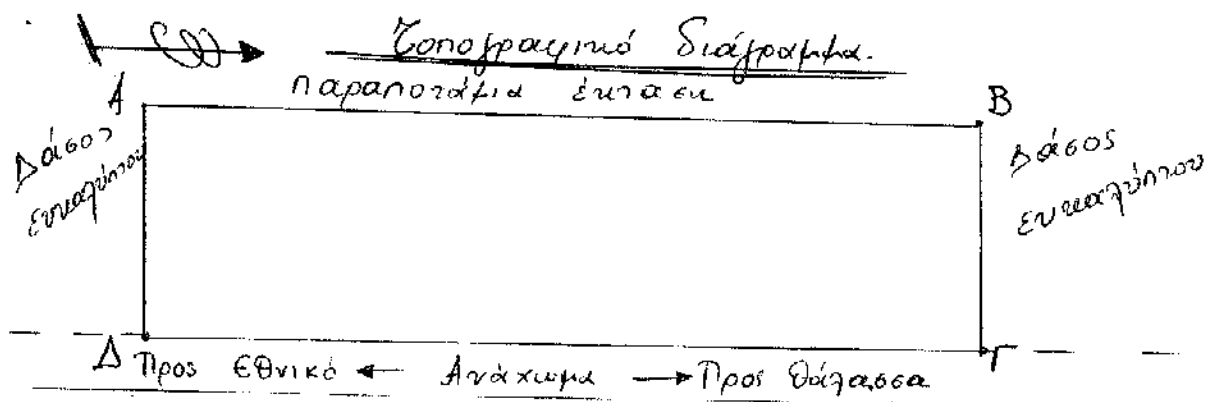 Τοπογραφικό διάγραμμα.
παραποτάμια έκταση
Α
Β
Δάσος
ευκαλύπτου
Δάσος
ευκαλύπτου
Δ
Προς Εθνικό ← Ανάχωμα → Προς θάλασσα
Γ